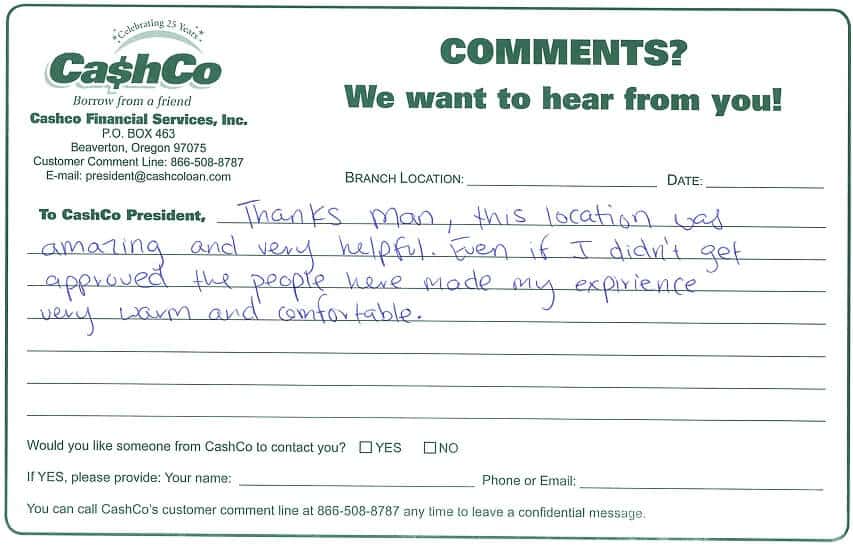 Celebrating 25 Years
Ca$hCo
Borrow from a friend
Cashco Financial Services, Inc.
P.O. BOX 463
Beaverton, Oregon 97075
Customer Comment Line: 866-508-8787
E-mail: president@cashcoloan.com
COMMENTS?
We want to hear from you!
BRANCH LOCATION: DATE:
To CashCo President, Thanks man, this location was
amazing and very helpful. Even if I didn't get
approved the people here made my expirience
very warm and comfortable.
Would you like someone from CashCo to contact you? YES NO
If YES, please provide: Your name: Phone or Email:
You can call CashCo's customer comment line at 866-508-8787 any time to leave a confidential message.